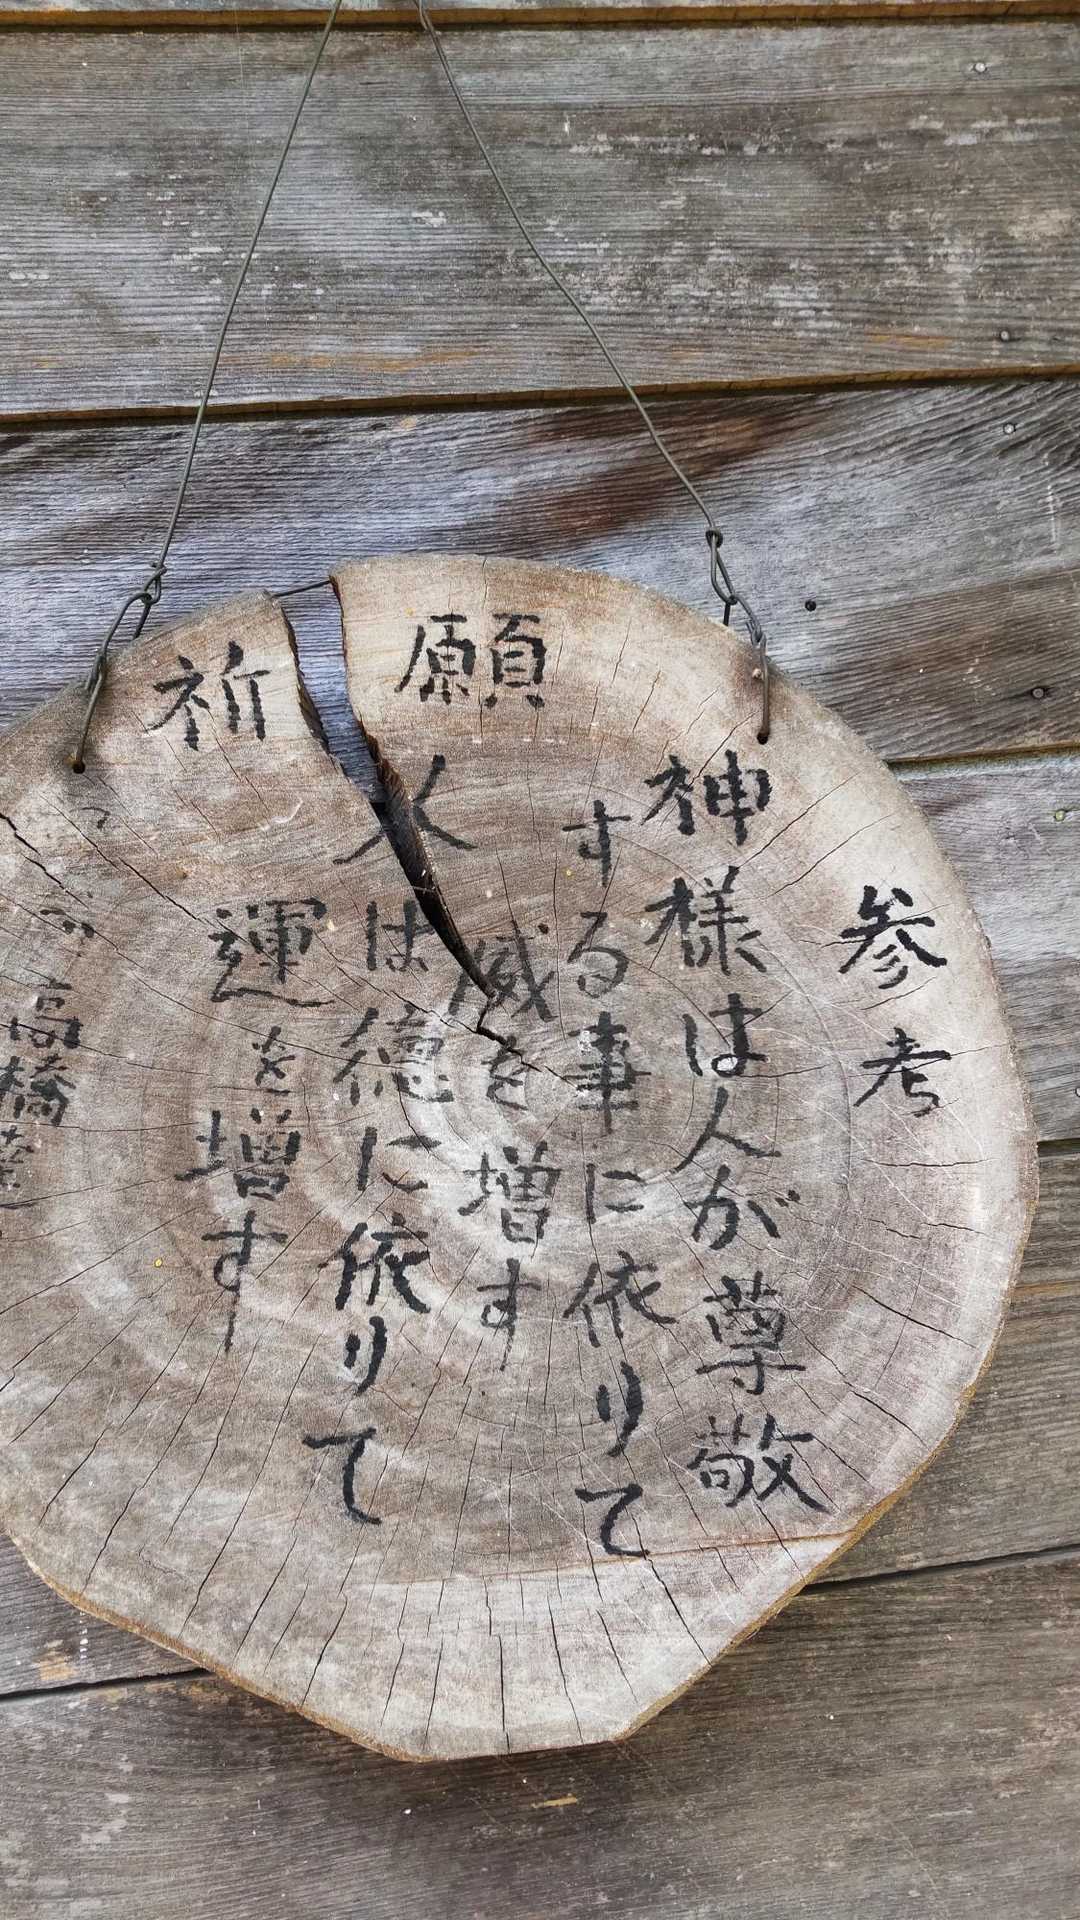 願祈
参考
神様は人が尊敬
する事に依りて
威を増す
人は徳に依りて
運を増す
高橋